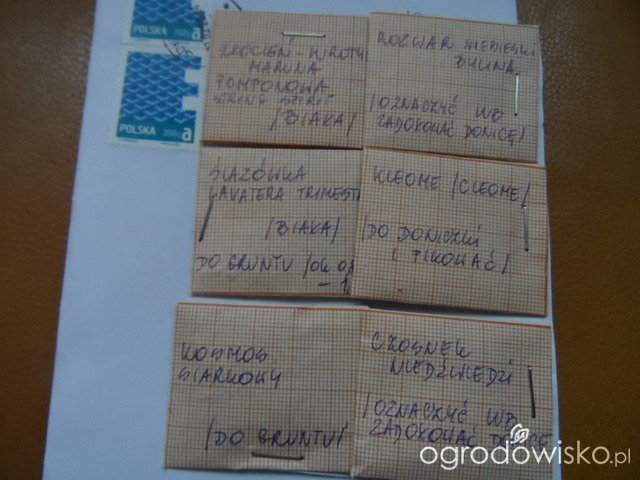 POLSKA 350g a
POLSKA 350g a
ZŁOCIEŃ - WROTY
MARUNA
POMPONOWA
/BIAŁA/
ROZWAR NIEBIESKI
BYLINA
/OZNACZYĆ
ZADOKOWAĆ DONICĘ/
ŚLAZÓWKA
LAVATERA TRIMEST
/BIAŁA/
DO GRUNTU /OK
KLEOME /CLEOME/
/DO DONICZKI
I PIKOWAĆ/
KOSMOS
SIARKOWY
/DO GRUNTU/
CZOSNEK
NIEDŹWIEDZI
/OZNACZYĆ
ZADOKOWAĆ DONICĘ
ogrodowisko.pl